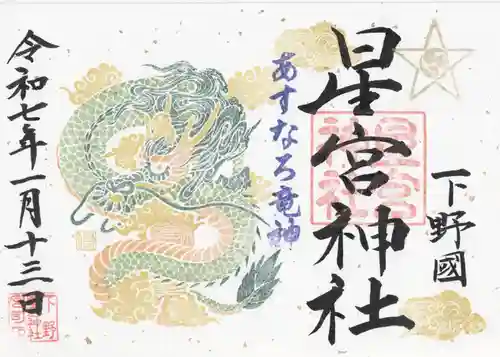 下野國
星宮神社
あすなろ竜神
令和七年一月十三日